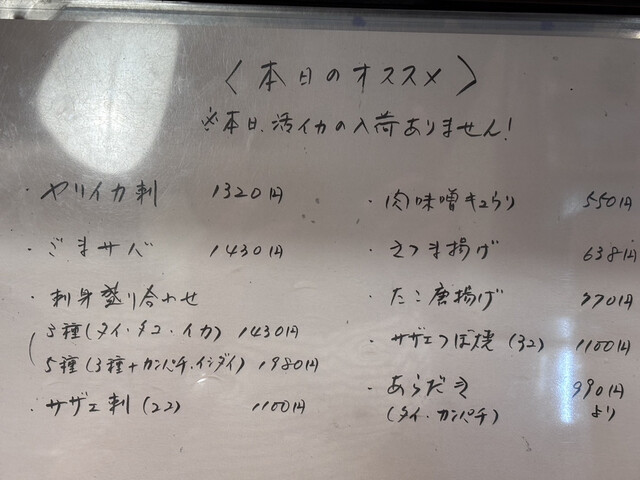 〈本日のオススメ〉
※本日、活イカの入荷ありません!
・ヤリイカ刺 1320円
・ごまサバ 1430円
・刺身盛り合わせ
3種(タイ・タコ・イカ) 1430円
5種(3種+カンパチ・イシダイ) 1980円
・サザエ刺(2コ) 1100円
・肉味噌キュウリ 550円
・さつま揚げ 638円
・たこ唐揚げ 770円
・サザエつぼ焼(3コ) 1100円
・あらだき 990円
(タイ・カンパチ) より